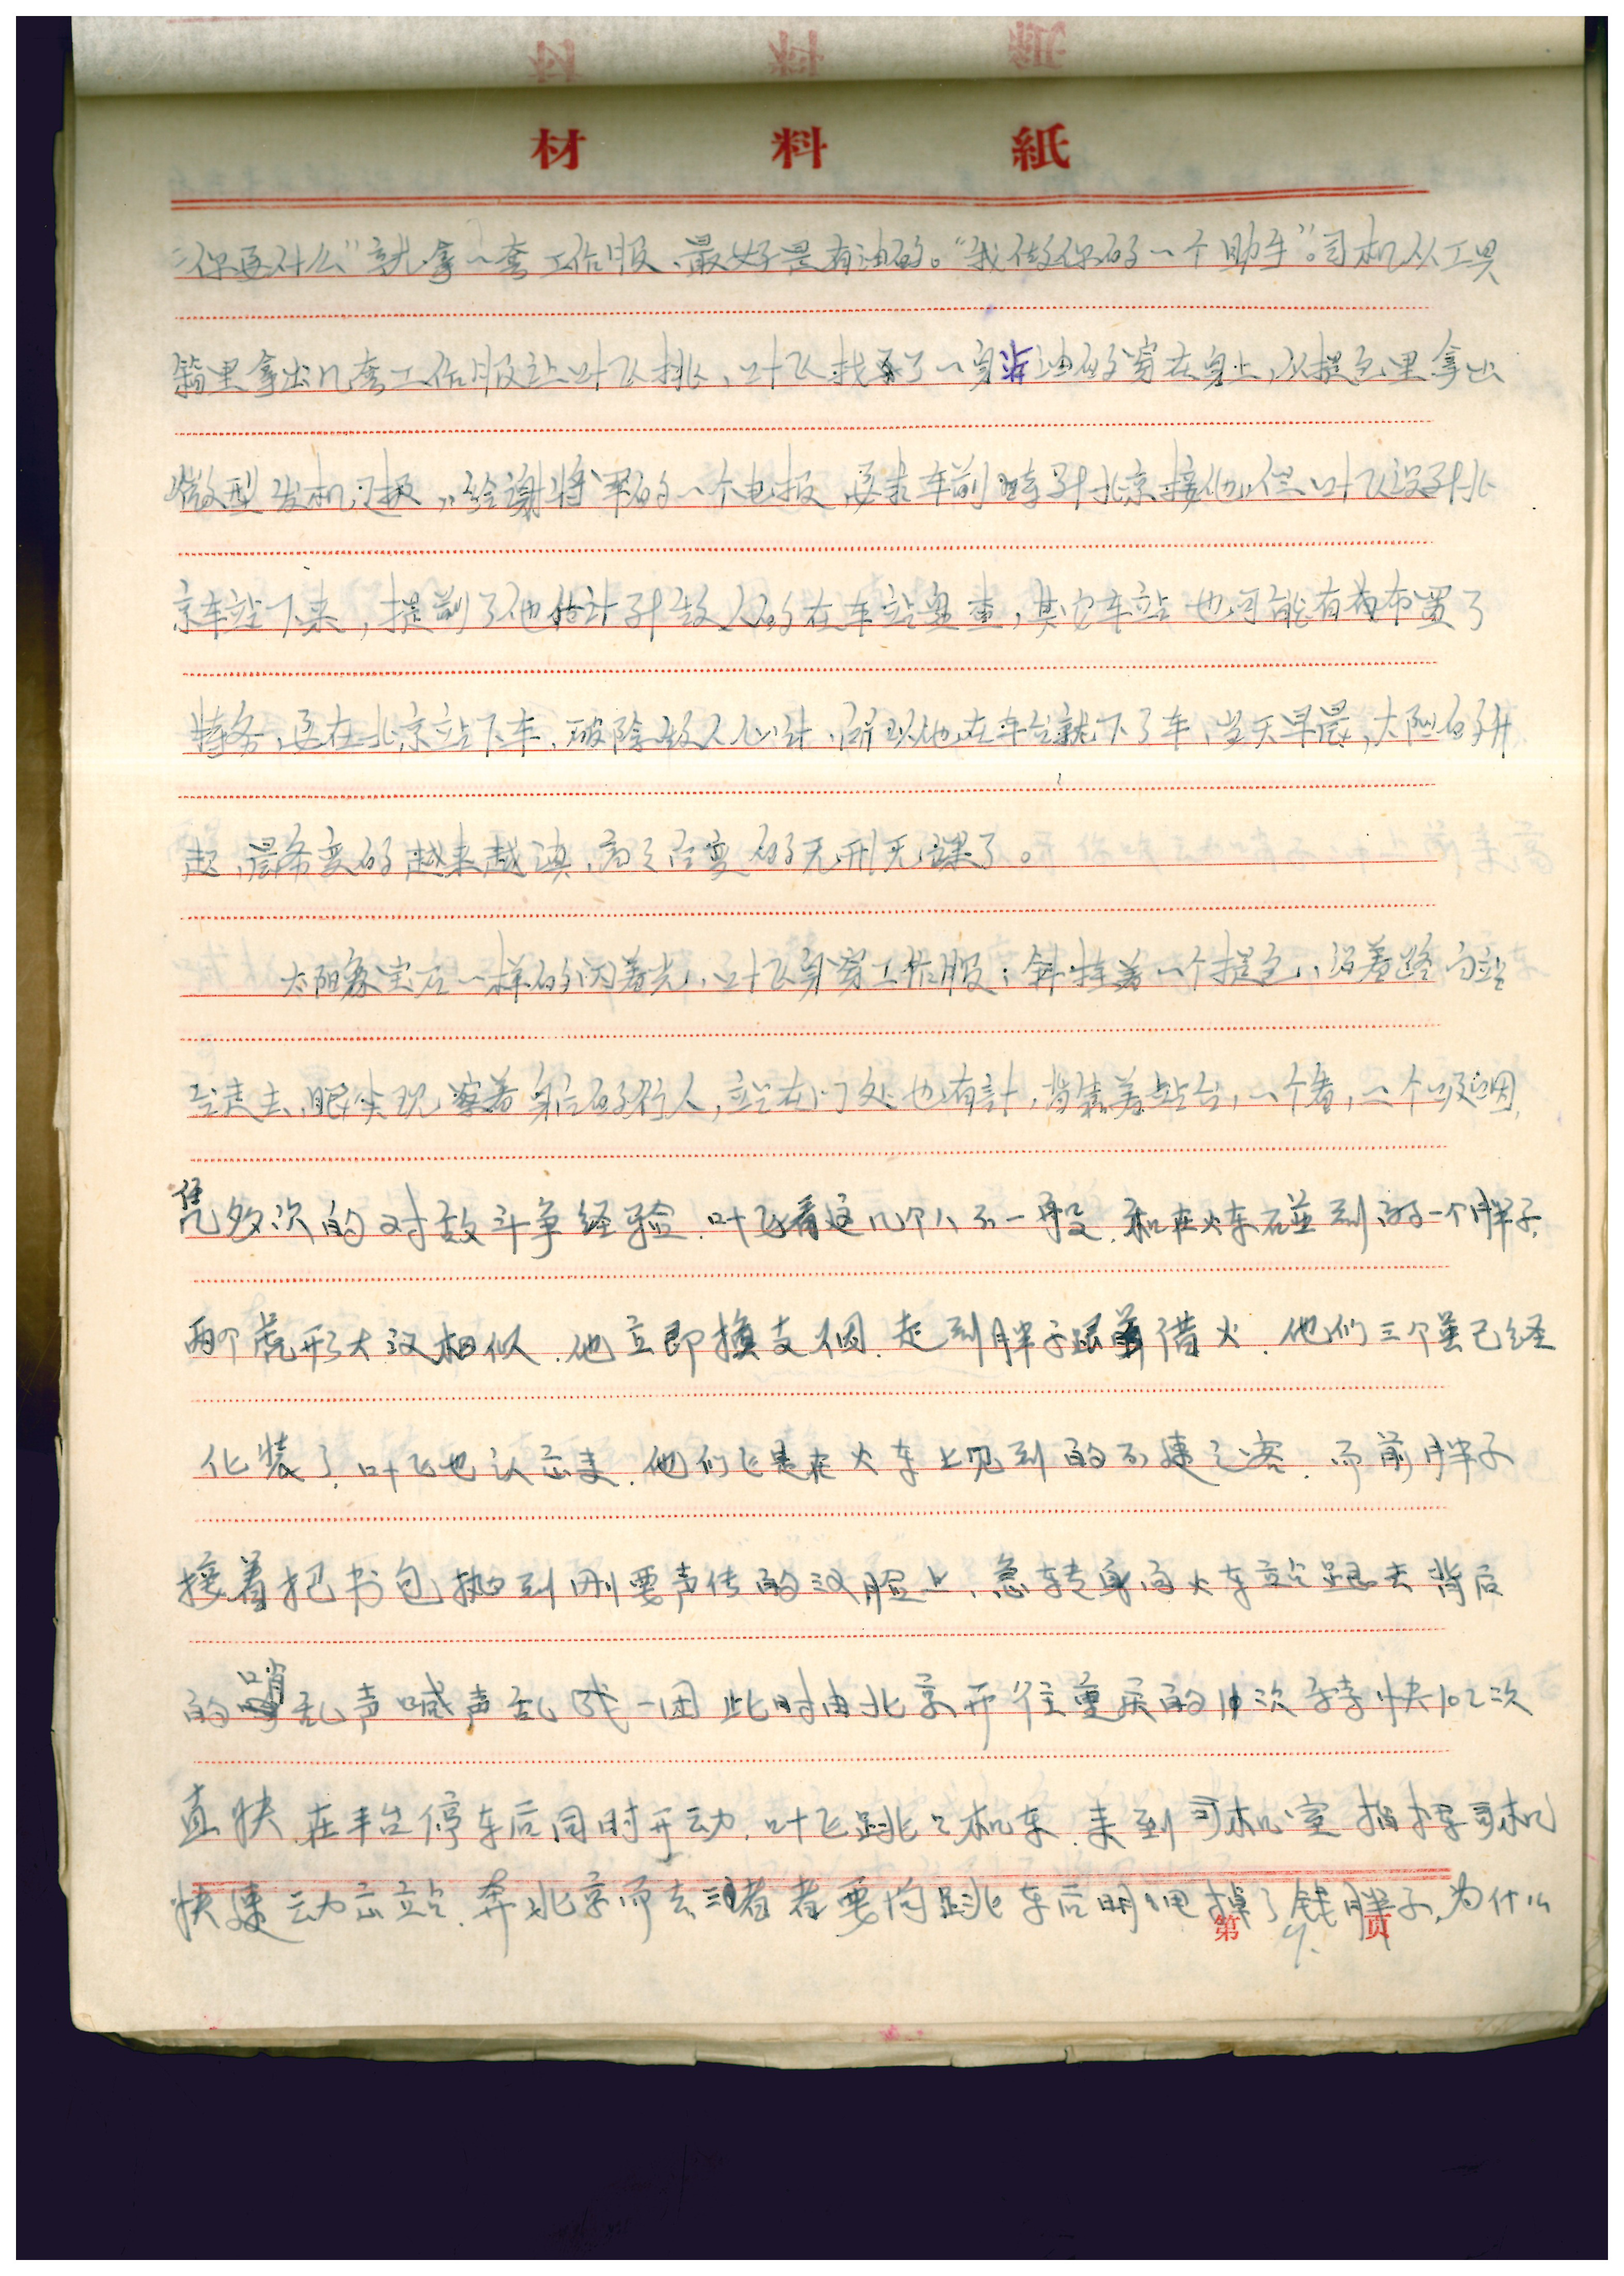 材料紙
“你要什么”就拿一套工作服、最好是有油的。“我做你的一个助手”。司机从工具
箱里拿出几套工作服让叶飞挑、叶飞找了一身沾油的穿在身上，从提包里拿出
微型发机报，给谢将军的一个电报，要求车前时到北京接他，但叶飞没到北
京车站下来，提前了他估计到敌人的在车站，其它车站也可能有布置了
特务，要在北京站下车，破除敌人心计，所以他在车台就下了车，当天早晨，太阳的升
起，晨雾变的越来越淡，最后变的无刑无踪了。
太阳象宝石一样的闪着光，叶飞身穿工作服；斜挂着一个提包，沿着路向站
台走去，眼尖观察着身后的行人，站在门处也有計，背靠着站台，一个看，一个吸烟，
凭多次的对敌斗争经验．叶飞看这几个人不一般．和在火车碰到的一个胖子，
两个虎形大汉相似．他立即换支烟．走到胖子跟前借火．他们三个虽已经
化装了．叶飞也认出来．他们是在火车上见到的不速之客．而前胖子
接着把书包抛到刚要声传的汉脸上，急转身向火车站跑去背后
的哨乱声喊声乱成一团此时由北京开往重庆的11次特快102次
直快在丰台停车后同时开动．叶飞跳上机车．来到司机室指挥司机
快速动出站．奔北京而去读者要问跳车后明甩掉了钱胖子，为什么
第9.页